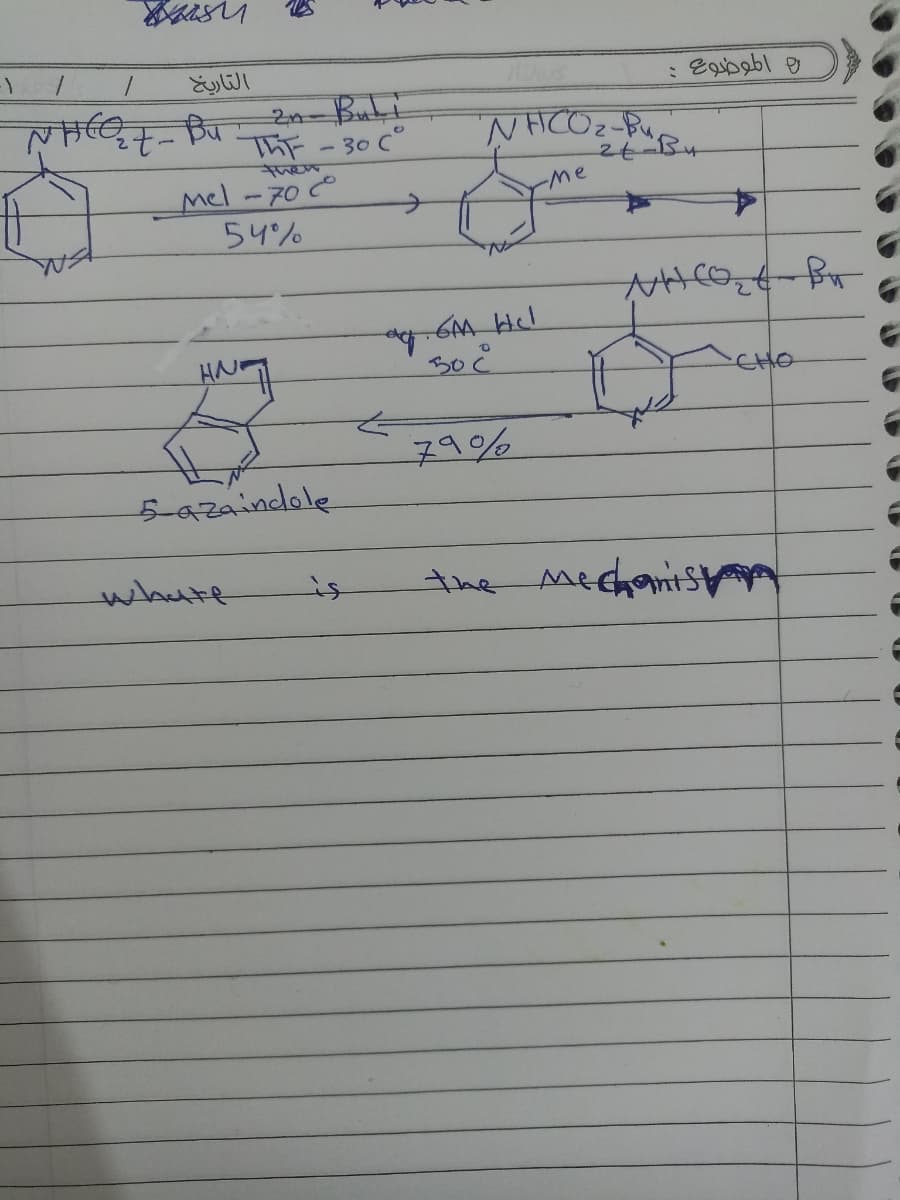 التاريخ / / الموضوع :
NHCO2t-Bu
2n-BuLi
THF -30 C°
then
MeI -70 C°
54%
NHCO2-Bu
2t-Bu
Me
N
N
NHCO2t-Bu
CHO
N
aq. 6M Hcl
50 C°
79%
HN
N
5-azaindole
whate is the Mechanism